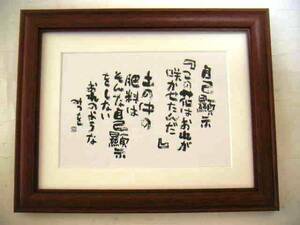 自己顯示
『この花はおれが
咲かせたんだ』
土の中の
肥料は
そんな自己顯示
をしない
おれのような
みつを